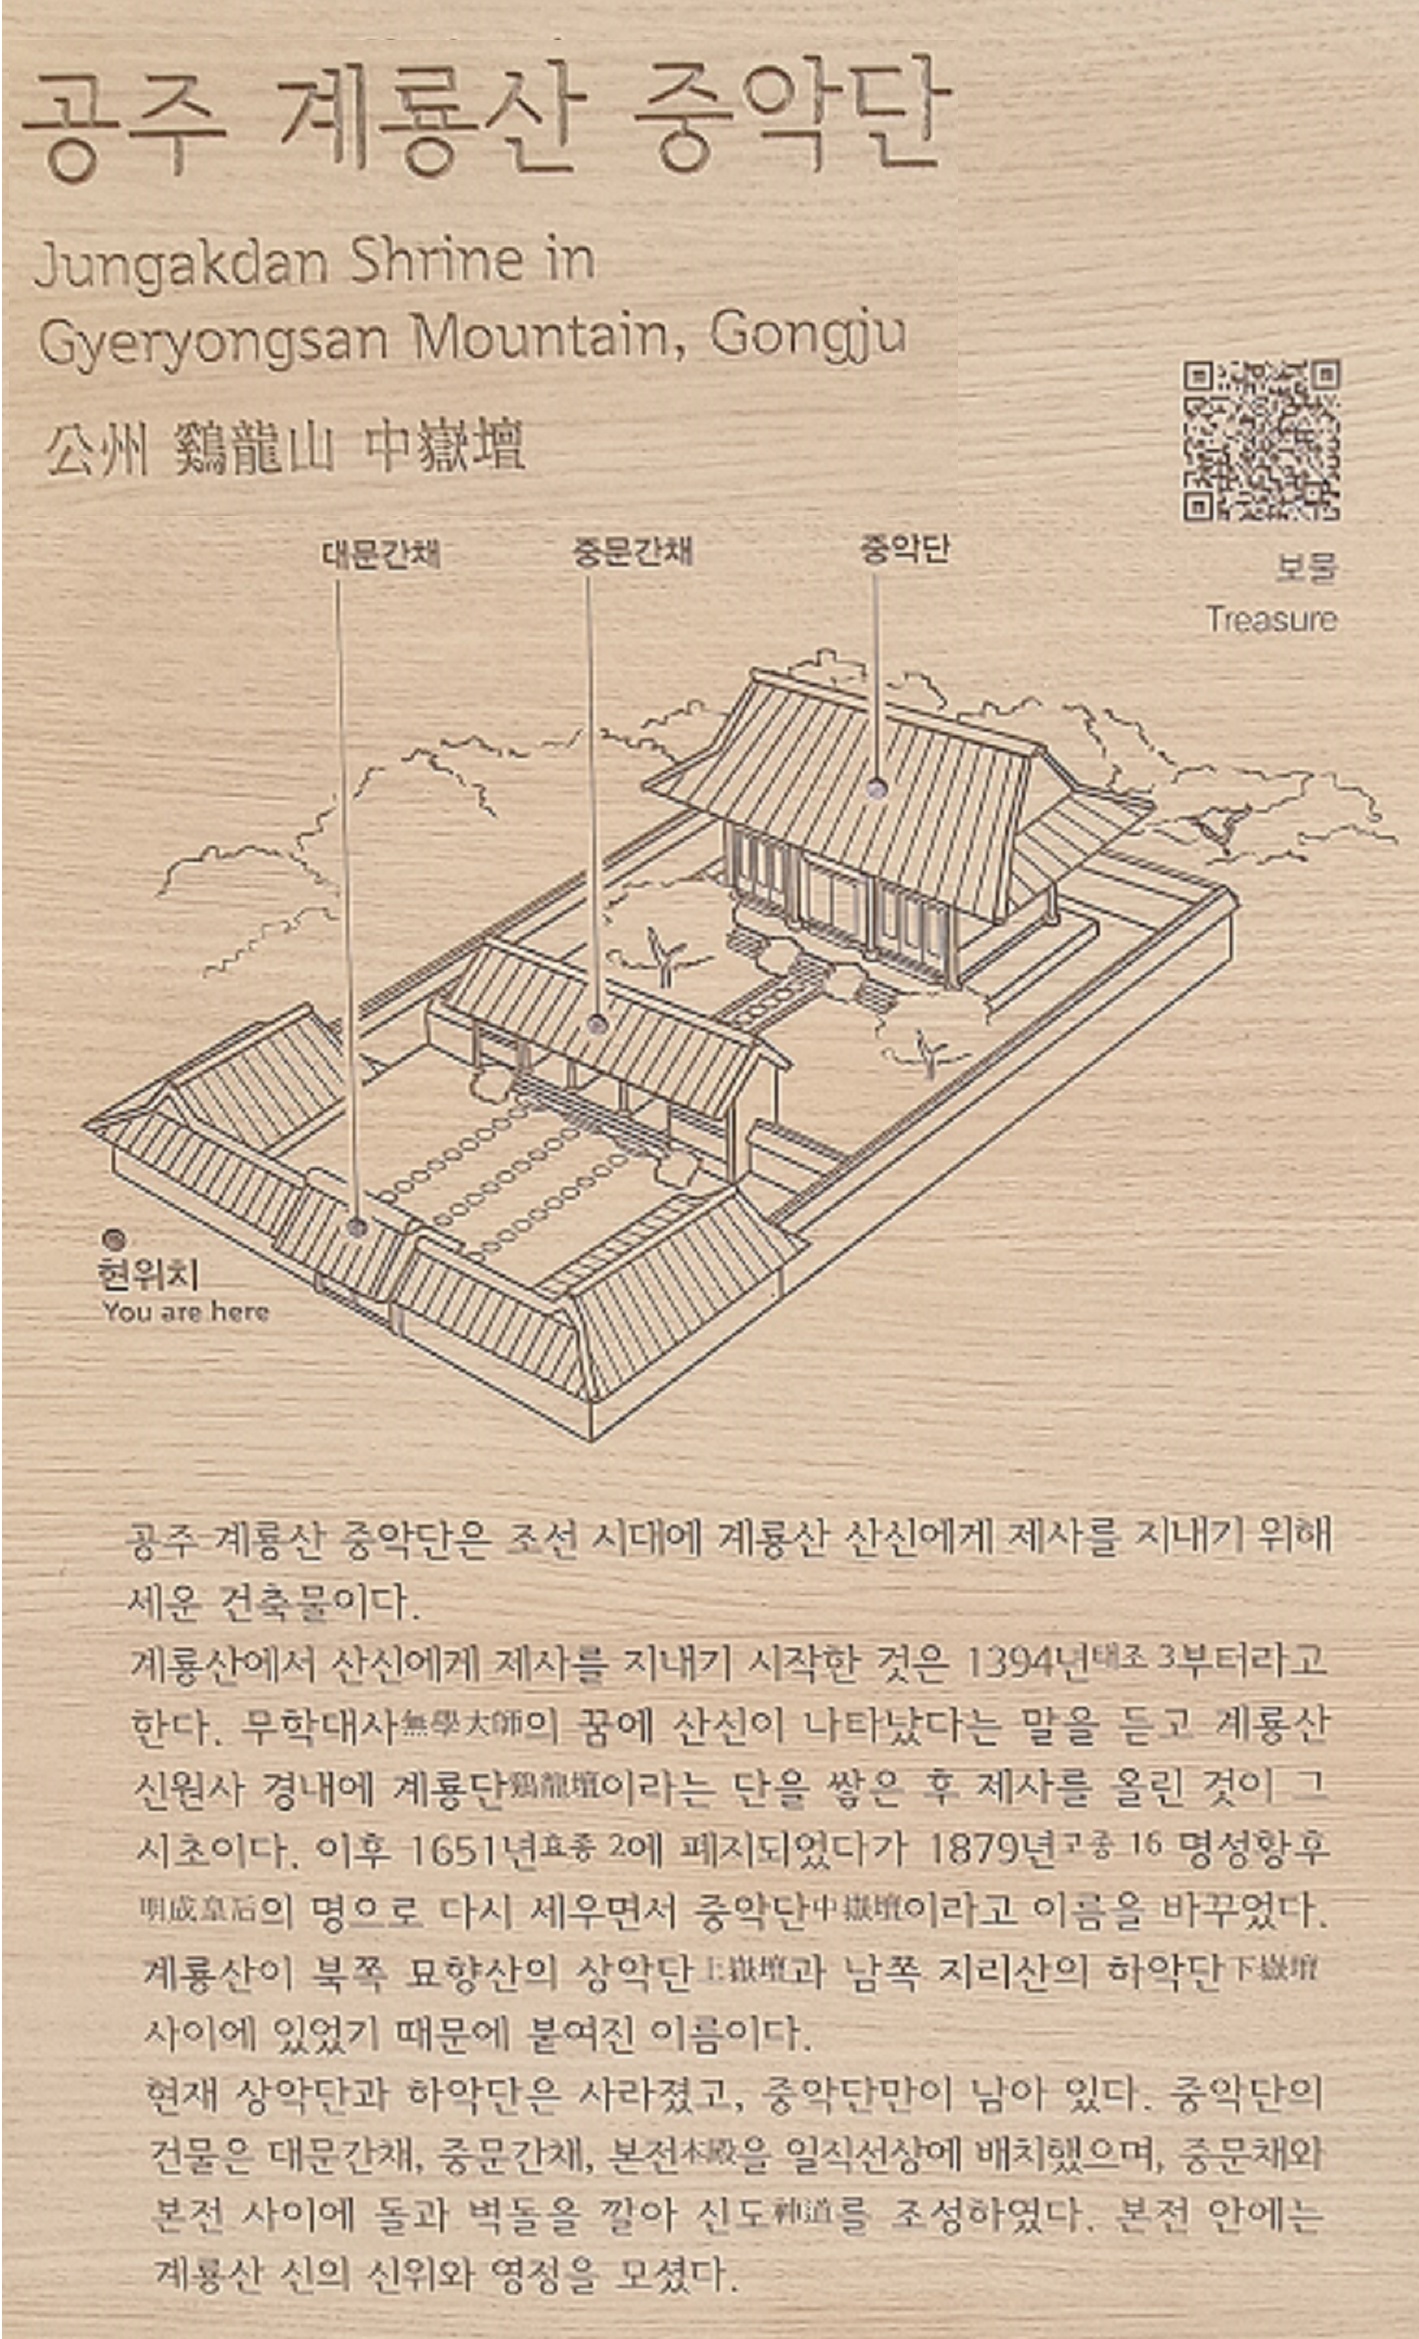 공주 계룡산 중악단
Jungakdan Shrine in
Gyeryongsan Mountain, Gongju
公州 鷄龍山 中嶽壇
보물
Treasure
대문간채 중문간채 중악단
현위치
You are here
공주 계룡산 중악단은 조선 시대에 계룡산 산신에게 제사를 지내기 위해
세운 건축물이다.
계룡산에서 산신에게 제사를 지내기 시작한 것은 1394년태조 3부터라고
한다. 무학대사無學大師의 꿈에 산신이 나타났다는 말을 듣고 계룡산
신원사 경내에 계룡단鷄龍壇이라는 단을 쌓은 후 제사를 올린 것이 그
시초이다. 이후 1651년효종 2에 폐지되었다가 1879년고종 16 명성황후
明成皇后의 명으로 다시 세우면서 중악단中嶽壇이라고 이름을 바꾸었다.
계룡산이 북쪽 묘향산의 상악단上嶽壇과 남쪽 지리산의 하악단下嶽壇
사이에 있었기 때문에 붙여진 이름이다.
현재 상악단과 하악단은 사라졌고, 중악단만이 남아 있다. 중악단의
건물은 대문간채, 중문간채, 본전本殿을 일직선상에 배치했으며, 중문채와
본전 사이에 돌과 벽돌을 깔아 신도神道를 조성하였다. 본전 안에는
계룡산 신의 신위와 영정을 모셨다.